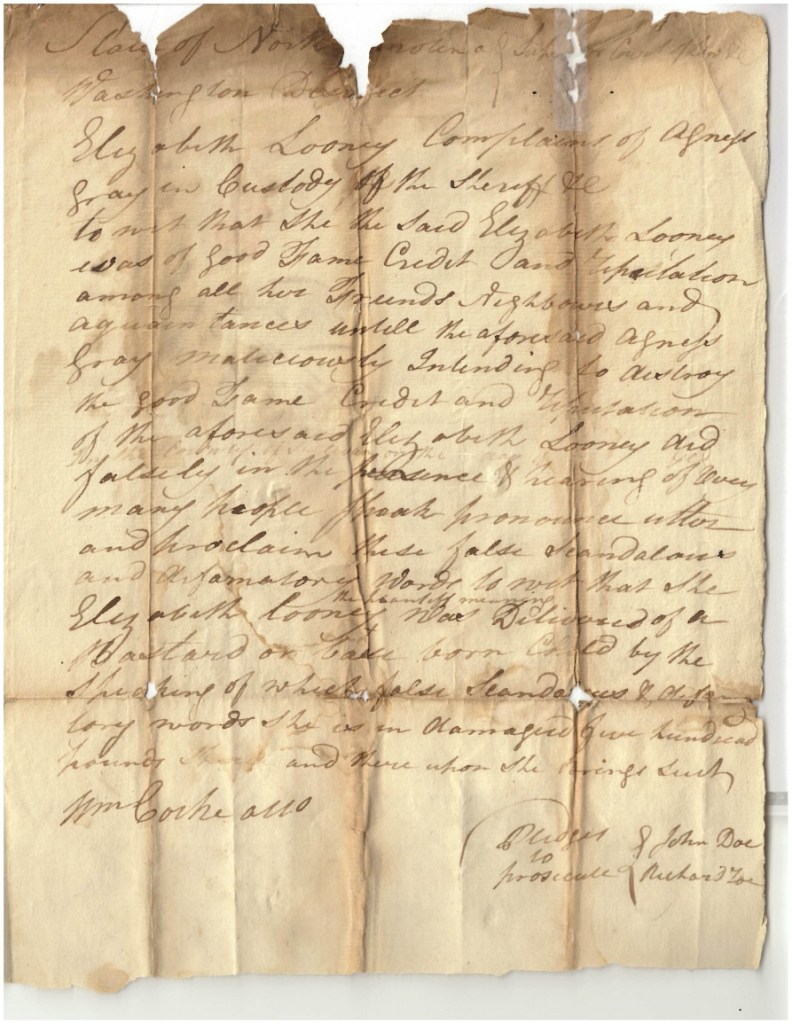 State of North Carolina } Superior Court of Law &c
Washington District
Elizabeth Looney Complains of Agness
gray in Custody of the Sheriff &c
to wit that She the Said Elizabeth Looney
was of good Fame Credit and Reputation
among all her Freends Nighbours and
aquaintances untill the aforesaid Agness
Gray maliciously Intending to destroy
the good Fame Credit and Reputation
of the aforesaid Elizabeth Looney did
falsely in the presence & hearing of Very
many people Speak pronounce utter
and proclaim these false Scandalous
and difamatory Words to wit that She
the plaintiff meaning
Elizabeth Looney was Delivered of a
Bastard or base born Child by the
Speaking of which false Scandalous & difama
tory words She is in damaged five hundred
pounds and there upon She brings Suit
Wm Cocke atto
Pledges } John Doe
to
prosecute { Richard Roe